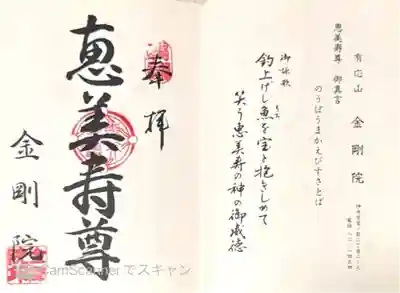 奉拝
恵美寿尊
金剛院
有応山 金剛院
恵美寿尊 御真言
のうばうまかえびすさとば
御詠歌
釣上げし魚を宝と抱きしめて
笑う恵美寿の神の御威徳
CamScanner でスキャン